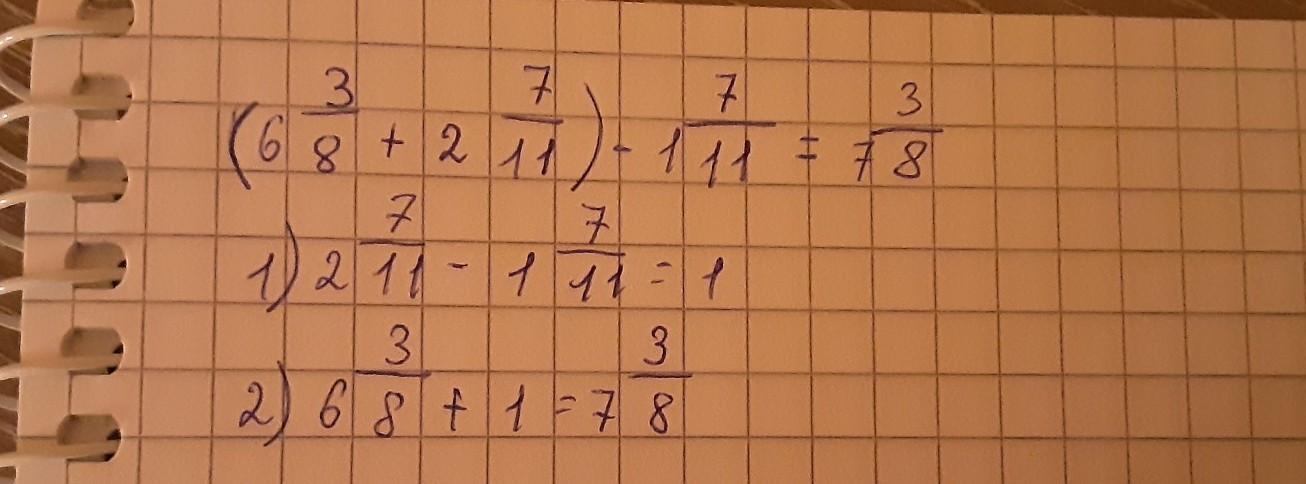 (6 3/8 + 2 7/11) - 1 7/11 = 7 3/8
1) 2 7/11 - 1 7/11 = 1
2) 6 3/8 + 1 = 7 3/8